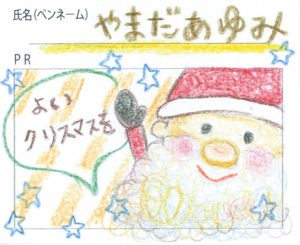 氏名(ペンネーム) やまだあゆみ
PR
よい
クリスマスを